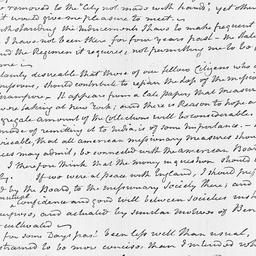 removed to the "City not made with hands", yet othe
it would give me pleasure to meet.
withstanding the Inducements I have to make frequent
I have not been there for four years past - the Rule
and the Regimen it requires, not permitting me to be
me.
desirable that those of our fellow Citizens who
should contribute to repair the loss of the Missio
It appears from a late Paper, that measure
were taking at New York; and there is Reason to hope a
aggregate amount of the Collections will be considerable.
mode of remitting it to India, is of some importance
that all american missionary measures shou
may admit, be connected with the american Boar
I therefore think that the money in question should
If we were at peace with England, I should pref
by the Board to the missionary Society there; and
mutual
confidence and good will between Societies
and actuated by similar motives of Ben
cultivated
for some Days past been less well than usual,
to be more concise, than I intended wh